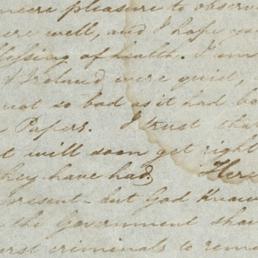 ncere pleasure to observe
ere well, and I hope you
lessing of health. I am
Ireland were quiet,
not so bad as it had be
Papers. I trust tha
t will soon get right
hey have had. Here
present - but God Know
the Government sha
orst criminals to rema